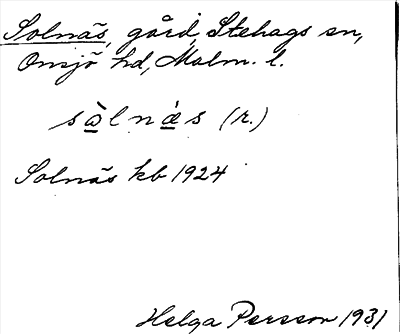 Solnäs, gård, Stehags sn,
Onsjö hd, Malm. l.
sὰlnæ̀s (r.)
Solnäs kb 1924
Helga Persson 1931